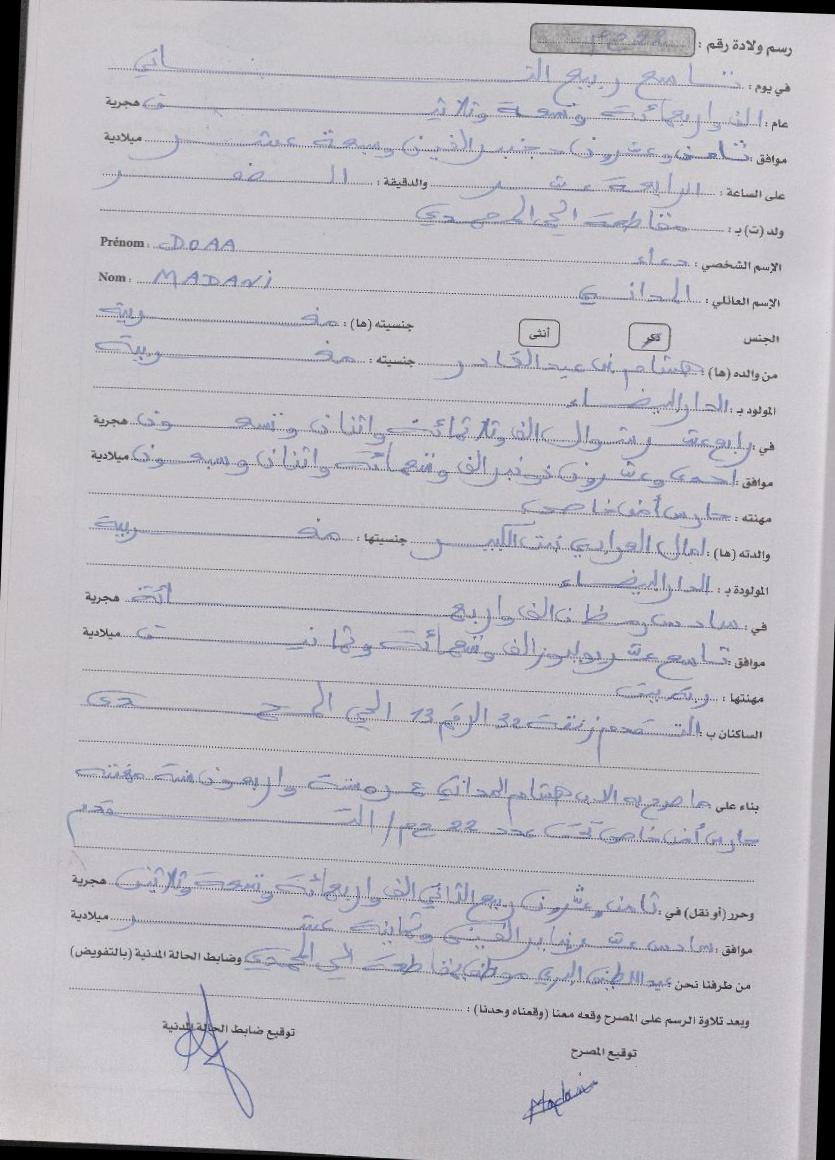 رسم ولادة رقم : 22 ح م
في يوم : تاسع ربيع الثاني
عام : الف واربعمائة وتسعة وثلاثين هجرية
موافق : ثامن وعشرون دجنبر الفين وسبعة عشر ميلادية
على الساعة : الرابعة عشر والدقيقة : الصفر
ولد (ت) بـ : مقاطعة الحي المحمدي
الإسم الشخصي : دعاء Prénom : DOAA
الإسم العائلي : المداني Nom : MADANI
الجنس ذكر أنثى جنسيته (ها) : مغربية
من والده (ها) : هشام بن عبد القادر جنسيته : مغربية
المولود بـ : الدار البيضاء
في : رابع عشر شوال الف وثلاثمائة واثنان وتسعون هجرية
موافق : احدى وعشرون نونبر الف وتسعمائة واثنان وسبعون ميلادية
مهنته : حارس أمن خاص
والدته (ها) : امال بنت الكبير جنسيتها : مغربية
المولودة بـ : الدار البيضاء
في : سادس رمضان الف واربعمائة هجرية
موافق : تاسع عشر يوليوز الف وتسعمائة وثمانين ميلادية
مهنتها : ربة بيت
الساكنان ب : التقدم زنقة 32 الرقم 13 الحي المحمدي
بناء على ما صرح به الاب هشام المداني عمره ستة واربعون سنة مهنته
حارس أمن خاص تحت عدد 22 ح م / التقدم
وحرر (أو نقل) في : ثامن وعشرون ربيع الثاني الف واربعمائة وتسعة وثلاثين هجرية
موافق : سادس عشر يناير الفين وثمانية عشر ميلادية
من طرفنا نحن : عبد اللطيف موظف بمقاطعة الحي المحمدي وضابط الحالة المدنية (بالتفويض)
وبعد تلاوة الرسم على المصرح وقعه معنا (وقعناه وحدنا) :
توقيع المصرح توقيع ضابط الحالة المدنية
Madani